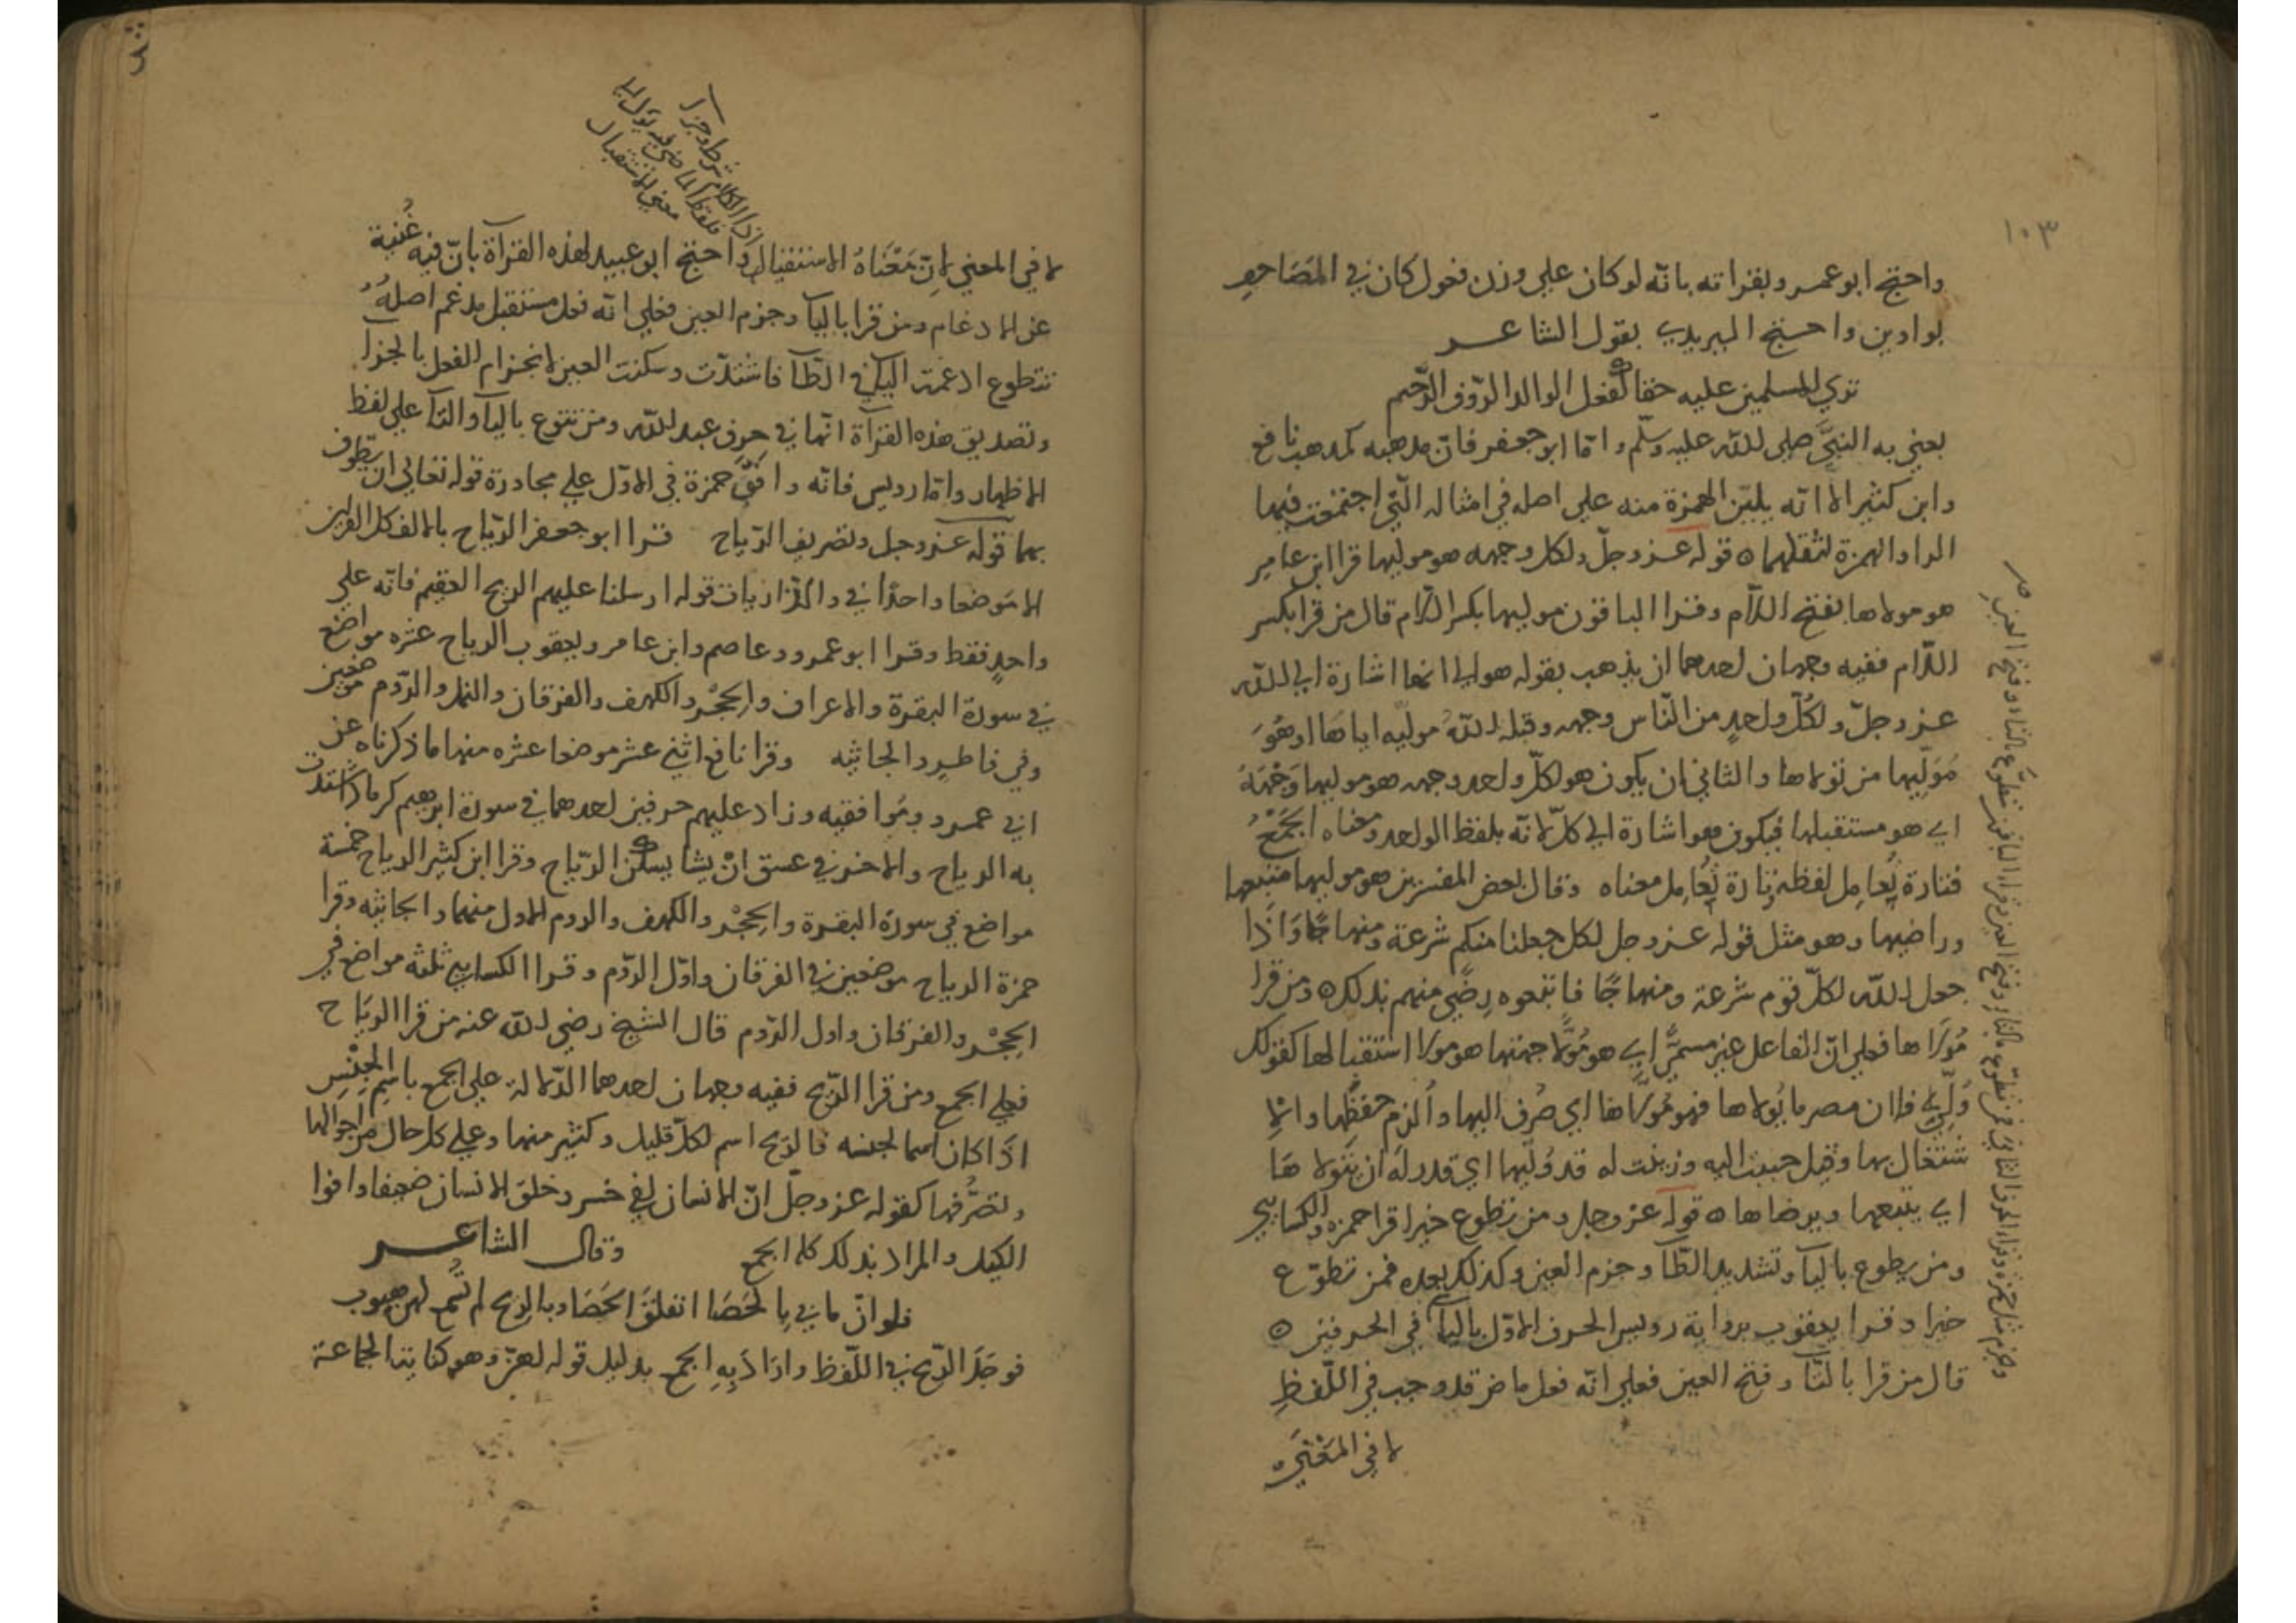 ١٠٣
واحتج ابو عمرو بقراته بانه لو كان علي وزن فعول كان في المصاحف
بواوين واحتج اليزيدي بقول الشاعر
تري للمسلمين عليه حقا كفعل الوالد الرّوف الرّحيم
يعني به النبيَّ صلي الله عليه وسلّم وامّا ابو جعفر فانّ مذهبه كمذهب نافع
وابن كثير الا انّه يليّن الهمزة منه علي اصله في امثاله الّتي اجتمعت فيها
الواو والهمزة لثقلهما ه قوله عز وجلّ ولكل وجهه هو موليها قرا ابن عامر
هو مولاها بفتح اللّام وقرا الباقون موليها بكسر اللّام قال من قرا بكسر
اللّام ففيه وجهان احدهما ان يذهب بقوله هو الي انها اشارة الي الله
عز وجلّ ولكُلّ واحدٍ من النّاس وجهه وقبله اللهُ موليّه اياها او هُوَ
مُوَلّيها من تولاها والثاني ان يكون هو لكلّ واحد وجهه هو موليها وَجْهَهُ
اي هو مستقبلها فيكون هو اشارة الي كلّ لانّه بلفظ الواحد ومعناه الجَمْعُ
فتارة يُعامِل لفظه وتارة يُعَامِل معناه وقال بعض المفسرين هو موليها متبعها
وراضيها وهو مثل قوله عز وجل لكل جعلنا منكم شرعة ومنهاجًا وَاذَا
جعل الله لكلّ قوم شرعة ومنهاجًا فاتبعوه رِضًي منهم بذلك ه ومن قرا
مُولَّاها فعلي انّ الفاعل غير مسمًّي اي هو مُوَلّا جهتها هو مولا استقبالها كقولك
وُلّي فلان مصر ما يُولاها فهو مُوَلّاها اي صُرِف اليها واُلزم حفظها والا
شتغال بها وقيل حببت اليه وزينت له قد وُلّيها اي قدر لَه ان يتولاها
اي يتبعها ويرضاها ه قوله عز وجل ومن تطوع خيرا قرا حمزه والكسايي
ومن يطوع بالياآ وتشديد الطّآ وجزم العين وكذلك بعده فمن تطوّع
خيرا وقرا يعقوب برواية رويس الحرف الاوّل بالياآ في الحرفين ه
قال من قرا بالتّآ وفتح العين فعلي انّه فعل ماض قد وجب في اللّفظِ
لا في المَعْنَي ه
لا في المعني لانّ مَعْنَاهُ الاستقبال واحتج ابو عبيد لهذه القرآة بانّ فيه غُنية
عن الادغام ومن قرا باليآ وجزم العين فعلي انّه فعل مستقبل مدغم اصلهُ
تتطوع ادغمت التآ في الطّآ فاشتدّت وسكنت العين لانجزام الفعل بالجزآ
وتصديق هذه القرآة انّها في حرف عبد الله ومن تتوع باليآ والتآ علي لفظ
الاظهار وامّا رويس فانّه وافَقَ حمزة في الاوّل علي مجاورة قوله تعالي ان يطّوف
بهما قوله عز وجل وتصريف الرّياح قرا ابو جعفر الرّياح بالالف كل القرآن
الا مَوضعا واحدًا في والذّاريات قوله ارسلنا عليهم الريح العقيم فانّه علي
واحدٍ فقط وقرا ابو عمرو وعاصم وابن عامر ويعقوب الرياح عشره مواضع
في سورة البقرة والاعراف والحِجْر والكهف والفرقان والنمل والرّوم موضعين
وفي فاطر والجاثيه وقرا نافع اثني عشر موضعا عشره منها ما ذكرناه عن
ابي عمرو ومُوافقيه وزاد عليهم حرفين احدهما في سورة ابرهيم كرماد اشتدّت
به الرياح والاخر في عسق انْ يشا يسكن الرّياح وقرا ابن كثير الرياح خمسة
مواضع في سورة البقرة والحِجْر والكهف والروم الاول منهما والجاثيه وقرا
حمزة الرياح موضعين في الفرقان واوّل الرّوم وقرا الكسايي ثلثه مواضع في
الحِجْر والفرقان واول الرّوم قال الشيخ رضي الله عنه من قرا الريَاح
فعلي الجمع ومن قرا الرّيح ففيه وجهان احدهما الدّلالة علي الجمع باسْمِ الجِنْسِ
اذَا كان اسما لجنسه فالرّيح اسم لكلّ قليل وكثير منها وعلي كل حال من احوالها
وتصرُّفها كقوله عز وجلّ انّ الانسان لفي خسر وخلق الانسان ضعيفا واوفوا
الكيل والمراد بذلك كله الجمع وقال الشاعر
فلو انّ ما بي بالحَصَا انفلقَ الحَصَا وبالريح لم تُسمع لهن هبوب
فوحّدَ الرّيح في اللّفظ وارَادَ بِهِ الجمع بدليل قوله لهنّ وهو كناية الجماعة